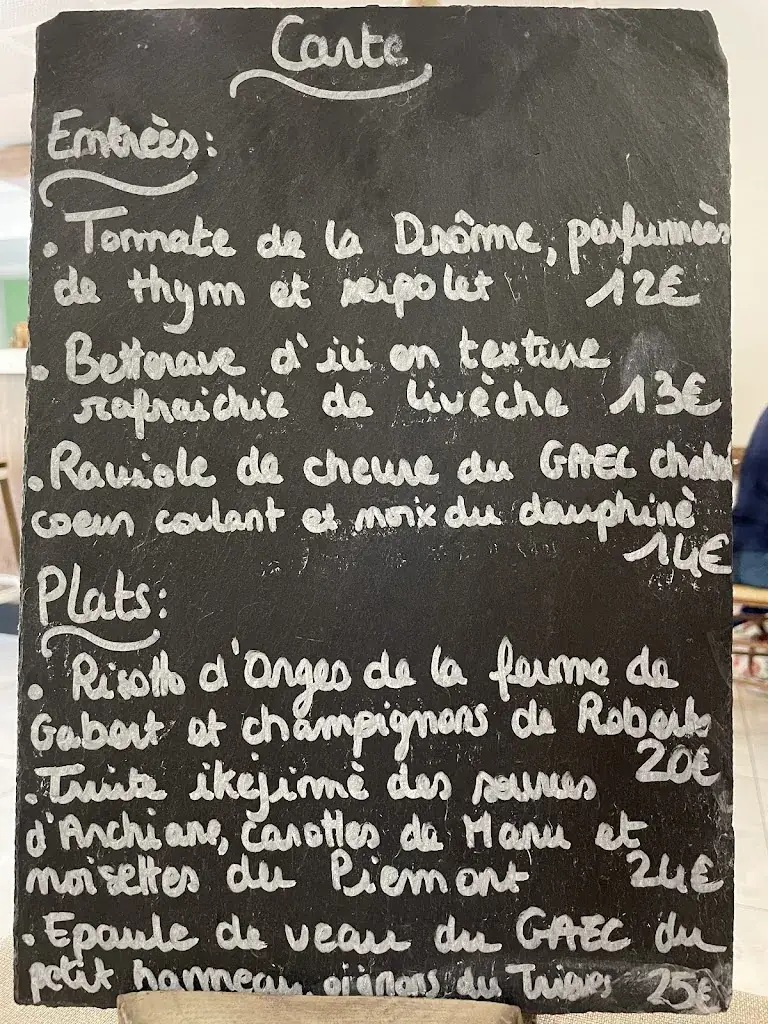 Carte
Entrées:
. Tomate de la Drôme, parfumées
de thym et serpolet 12€
. Betterave d'ici en texture
rafraichie de livèche 13€
. Raviole de chevre du GAEC
coeur coulant et noix du dauphiné
14€
Plats:
. Risotto d'Orges de la ferme de
Gabert et champignons de Roberto
20€
. Truite ikejimé des sources
d'Archiane, carottes de Manu et
noisettes du Piemont 24€
. Epaule de veau du GAEC du
petit hammeau oignons du Trièves 25€